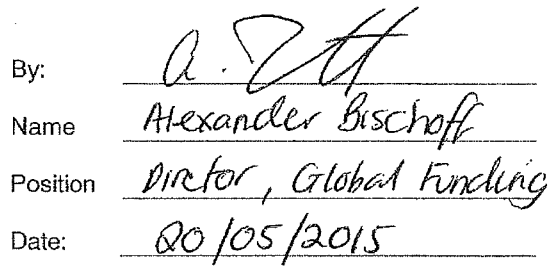 By:
Name Alexander Bischoff
Position Dirctor, Global Funding
Date: 20/05/2015